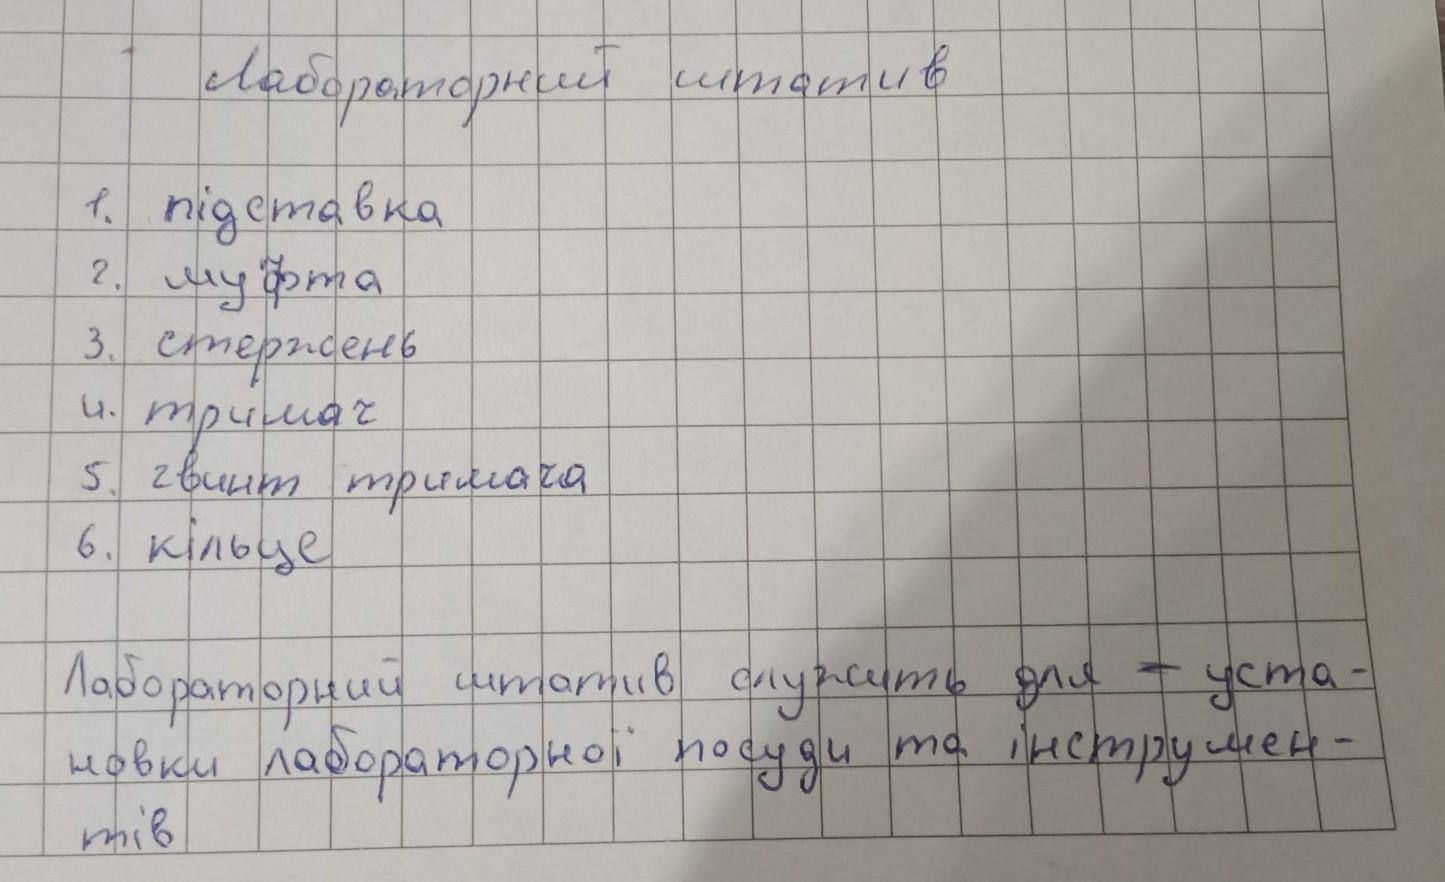 Лабораторний штатив
1. підставка
2. муфта
3. стержень
4. тримач
5. гвинт тримача
6. кільце
Лабораторний штатив служить для - уста-
новки лабораторної посуди та інструмен-
тів